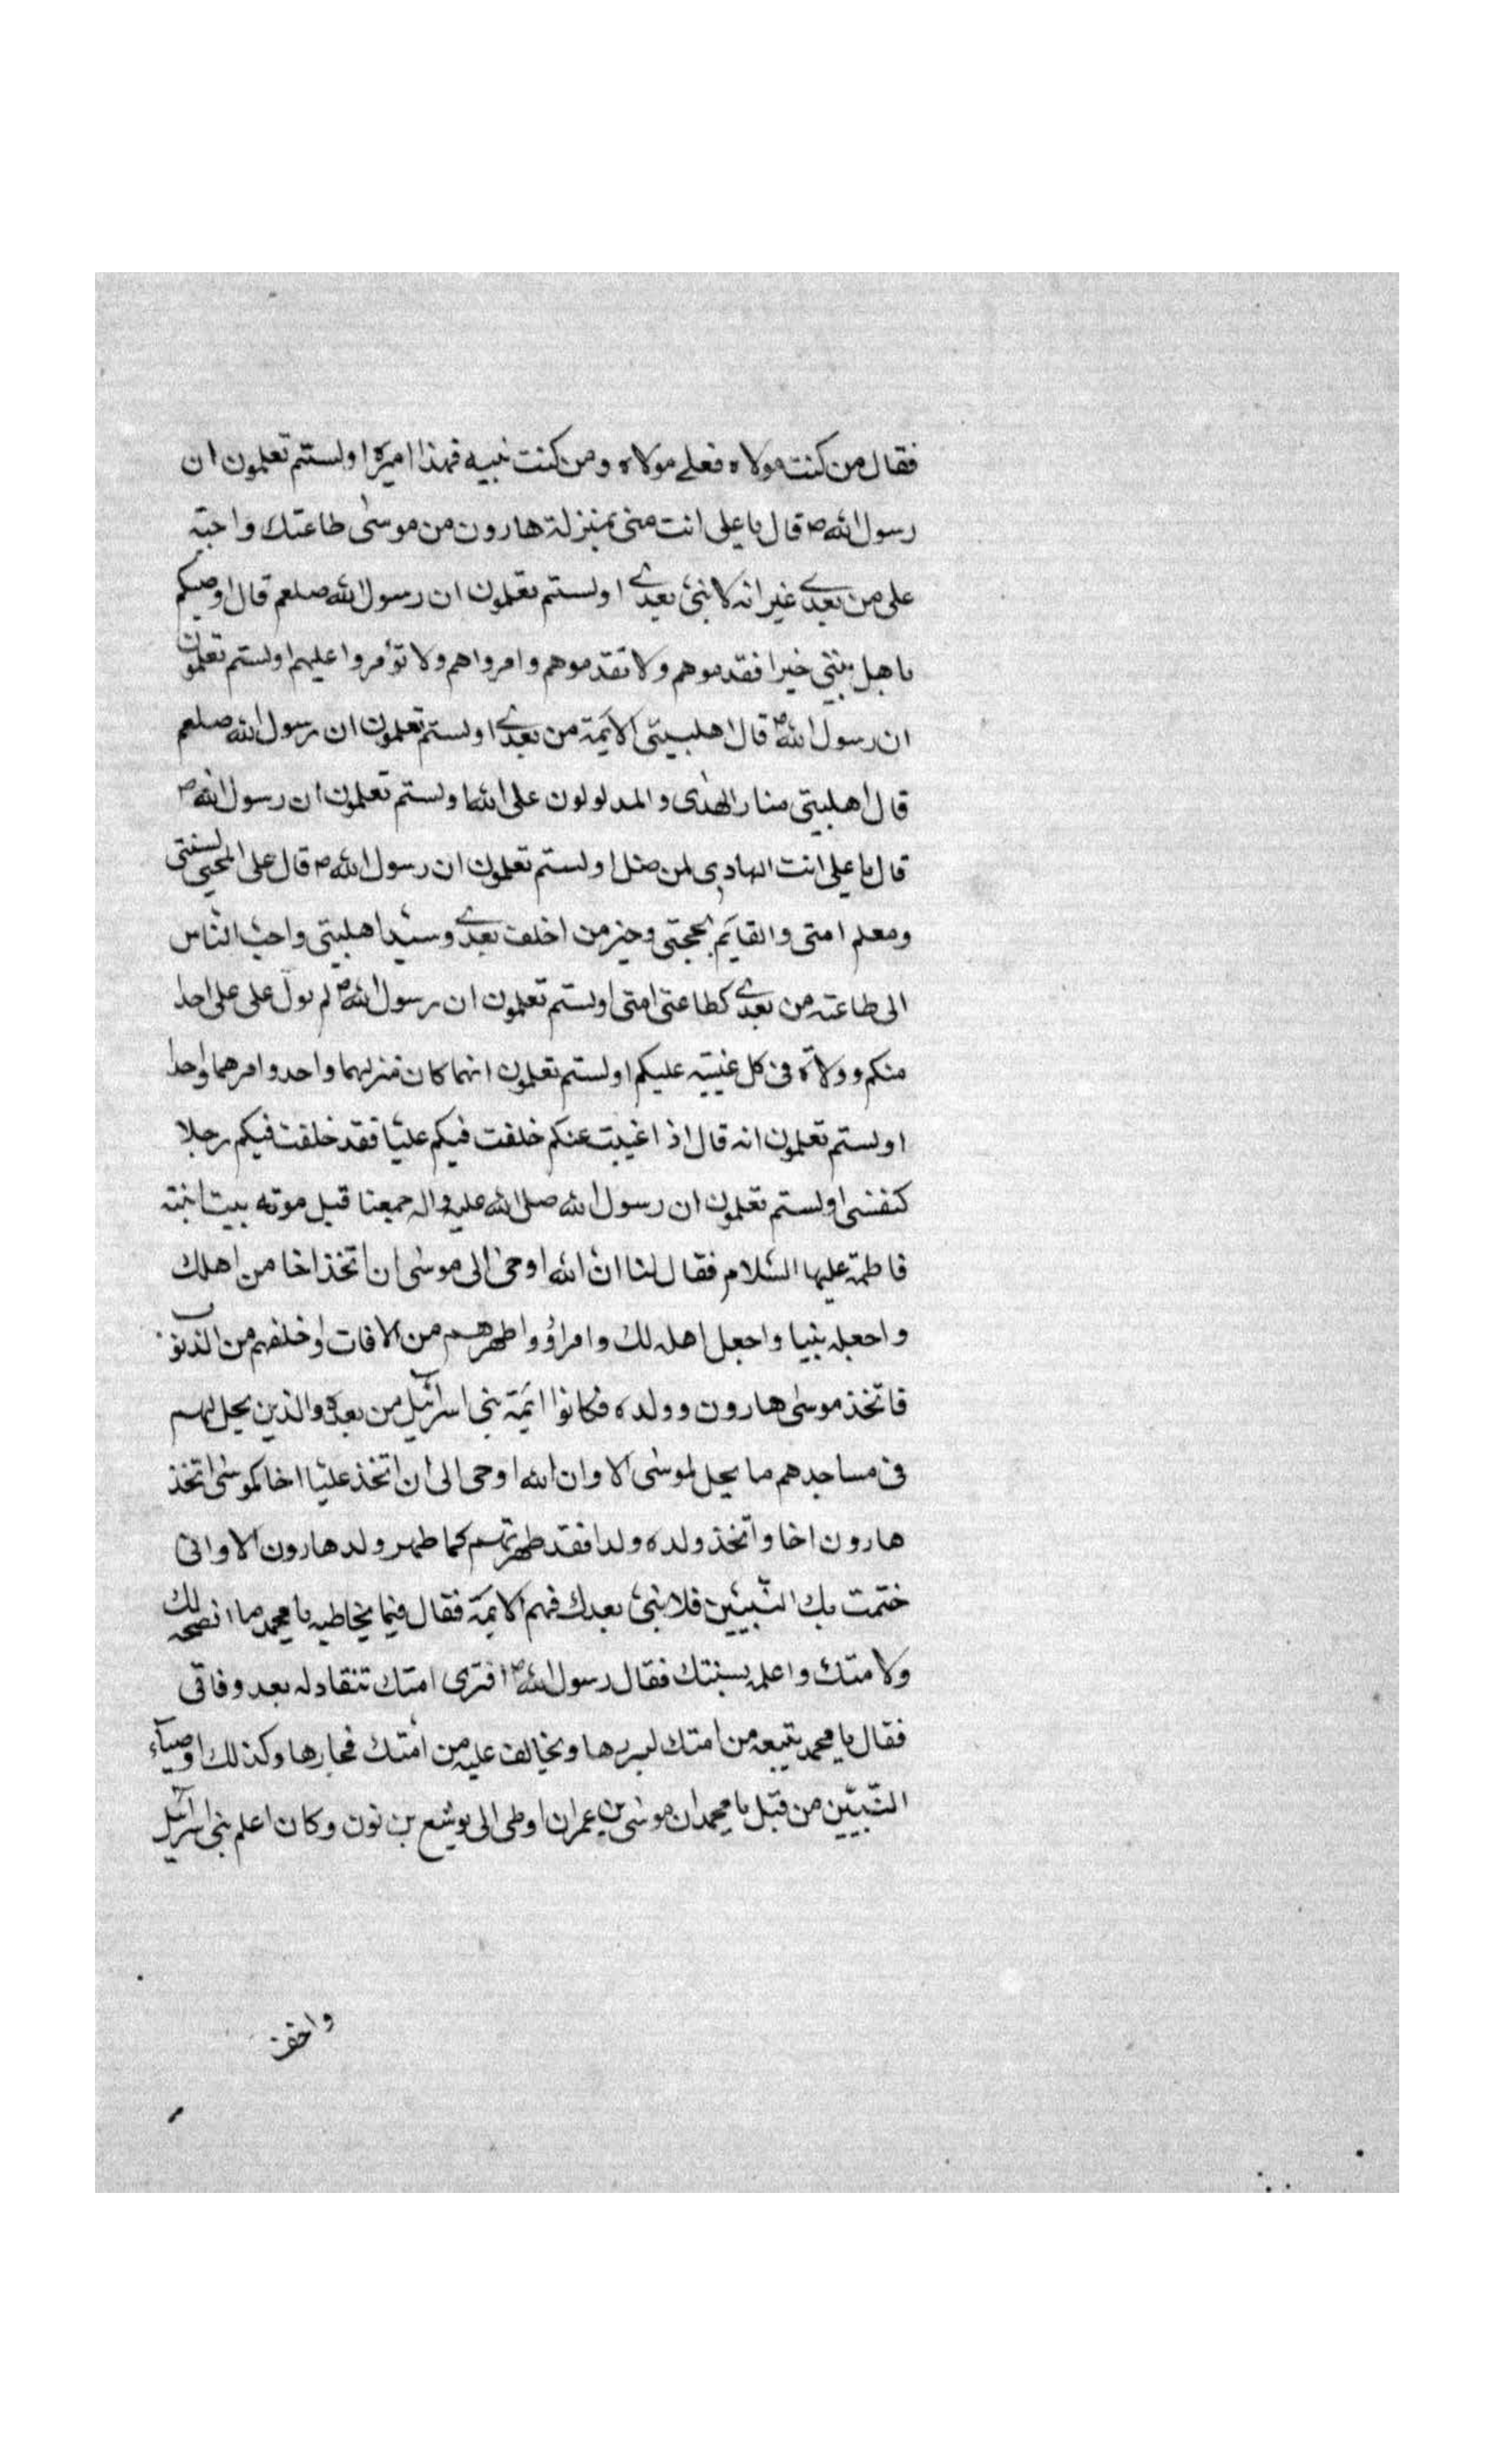 فقال من كنت مولاه فعلى مولاه ومن كنت نبيه فهذا اميره اولستم تعلمون ان
رسول الله ص قال يا على انت منى بمنزلة هارون من موسى طاعتك واجبة
على من بعدى غير انه لا نبى بعدى اولستم تعلمون ان رسول الله صلعم قال اوصيكم
باهل بيتى خيرا فقدموهم ولا تقدموهم وامرواهم ولا تؤمروا عليهم اولستم تعلمون
ان رسول الله ص قال اهلبيتى الائمة من بعدى اولستم تعلمون ان رسول الله صلعم
قال اهلبيتى منار الهدى والمدلولون على الله اولستم تعلمون ان رسول الله ص
قال يا على انت الهادى لمن ضل اولستم تعلمون ان رسول الله ص قال على المحيى لسنتى
ومعلم امتى والقايم بحجتى وخير من اخلف بعدى وسيد اهلبيتى واحب الناس
الى طاعته من بعدى كطاعتى امتى اولستم تعلمون ان رسول الله ص لم يول على على احدا
منكم وولاه فى كل غيبته عليكم اولستم تعلمون انهما كان منزلهما واحد وامرهما واحدا
اولستم تعلمون انه قال اذا غيبت عنكم خلفت فيكم عليا فقد خلفت فيكم رجلا
كنفسى اولستم تعلمون ان رسول الله صلى الله عليه واله جمعنا قبل موته ببيت ابنته
فاطمة عليها السلام فقال لنا ان الله اوحى الى موسى ان اتخذ اخا من اهلك
واجعله نبيا واجعل اهله لك وامراؤ واطهرهم من الافات واخلفهم من الذنوب
فاتخذ موسى هارون وولده فكانوا ائمة بنى اسرائيل من بعده والذين يحل لهم
فى مساجدهم ما يحل لموسى الا وان الله اوحى الى ان اتخذ عليا اخا كموسى اتخذ
هارون اخا واتخذ ولده ولدا فقد طهرتهم كما طهر ولد هارون الا وانى
ختمت بك النبيين فلا نبى بعدك فهم الائمة فقال فيما يخاطبه يا محمد ما انصحه لك
ولامتك واعلمه بسنتك فقال رسول الله ص افترى امتك تنقاد له بعد وفاتى
فقال يا محمد يتبعه من امتك لبررها ويخالف عليه من امتك فجارها وكذلك اوصياء
النبيين من قبل يا محمد ان موسى بن عمران اوصى الى يوشع بن نون وكان اعلم بنى اسرائيل